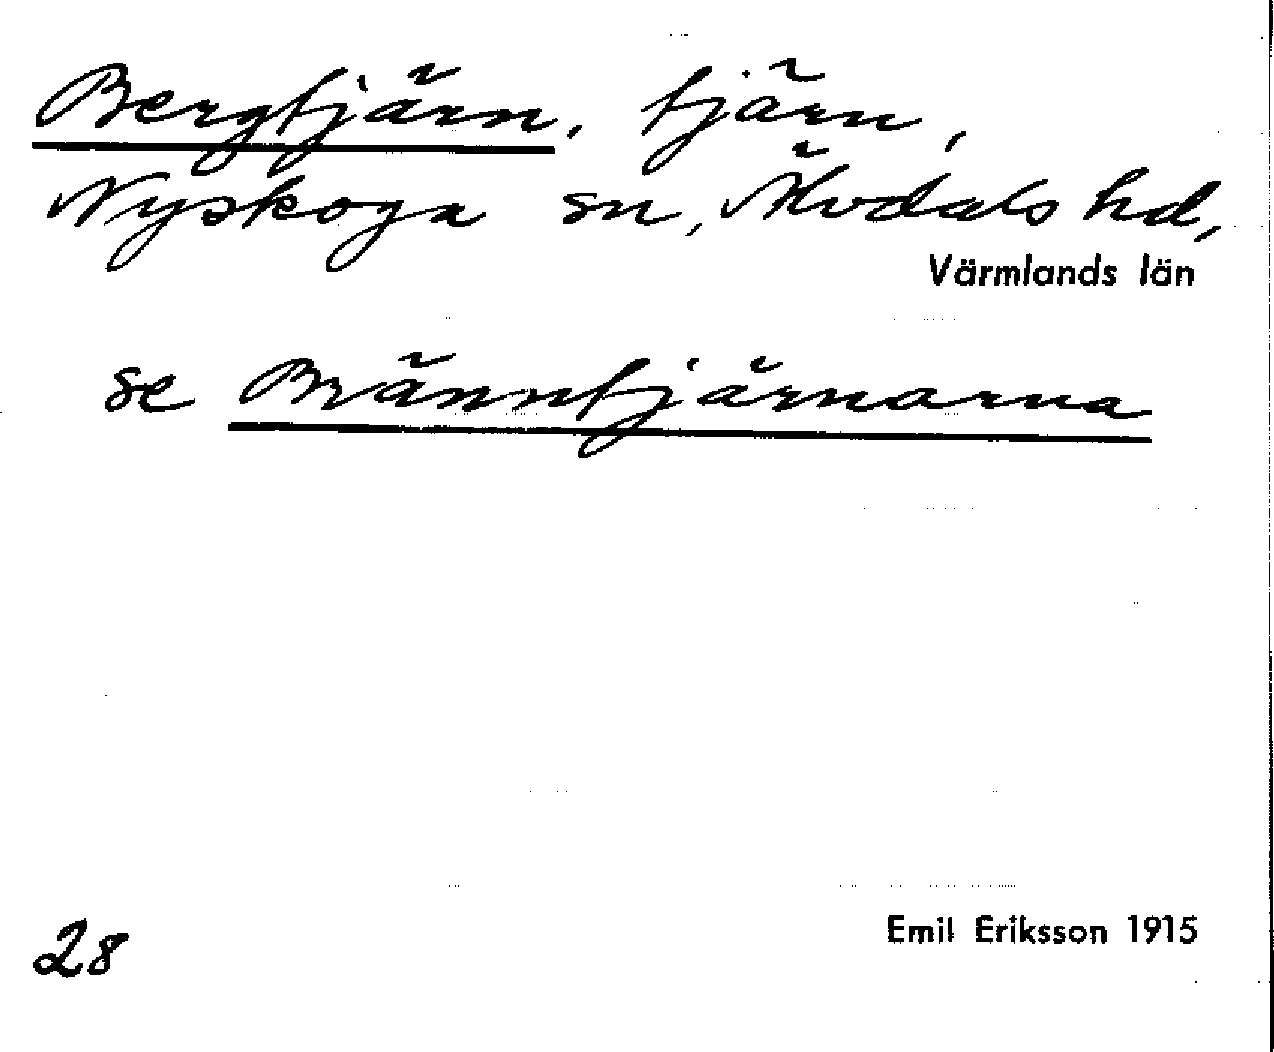 Bergtjärn, tjärn,
Nyskoga sn, Älvdals hd,
Värmlands län
se Bränntjärnarna
28
Emil Eriksson 1915